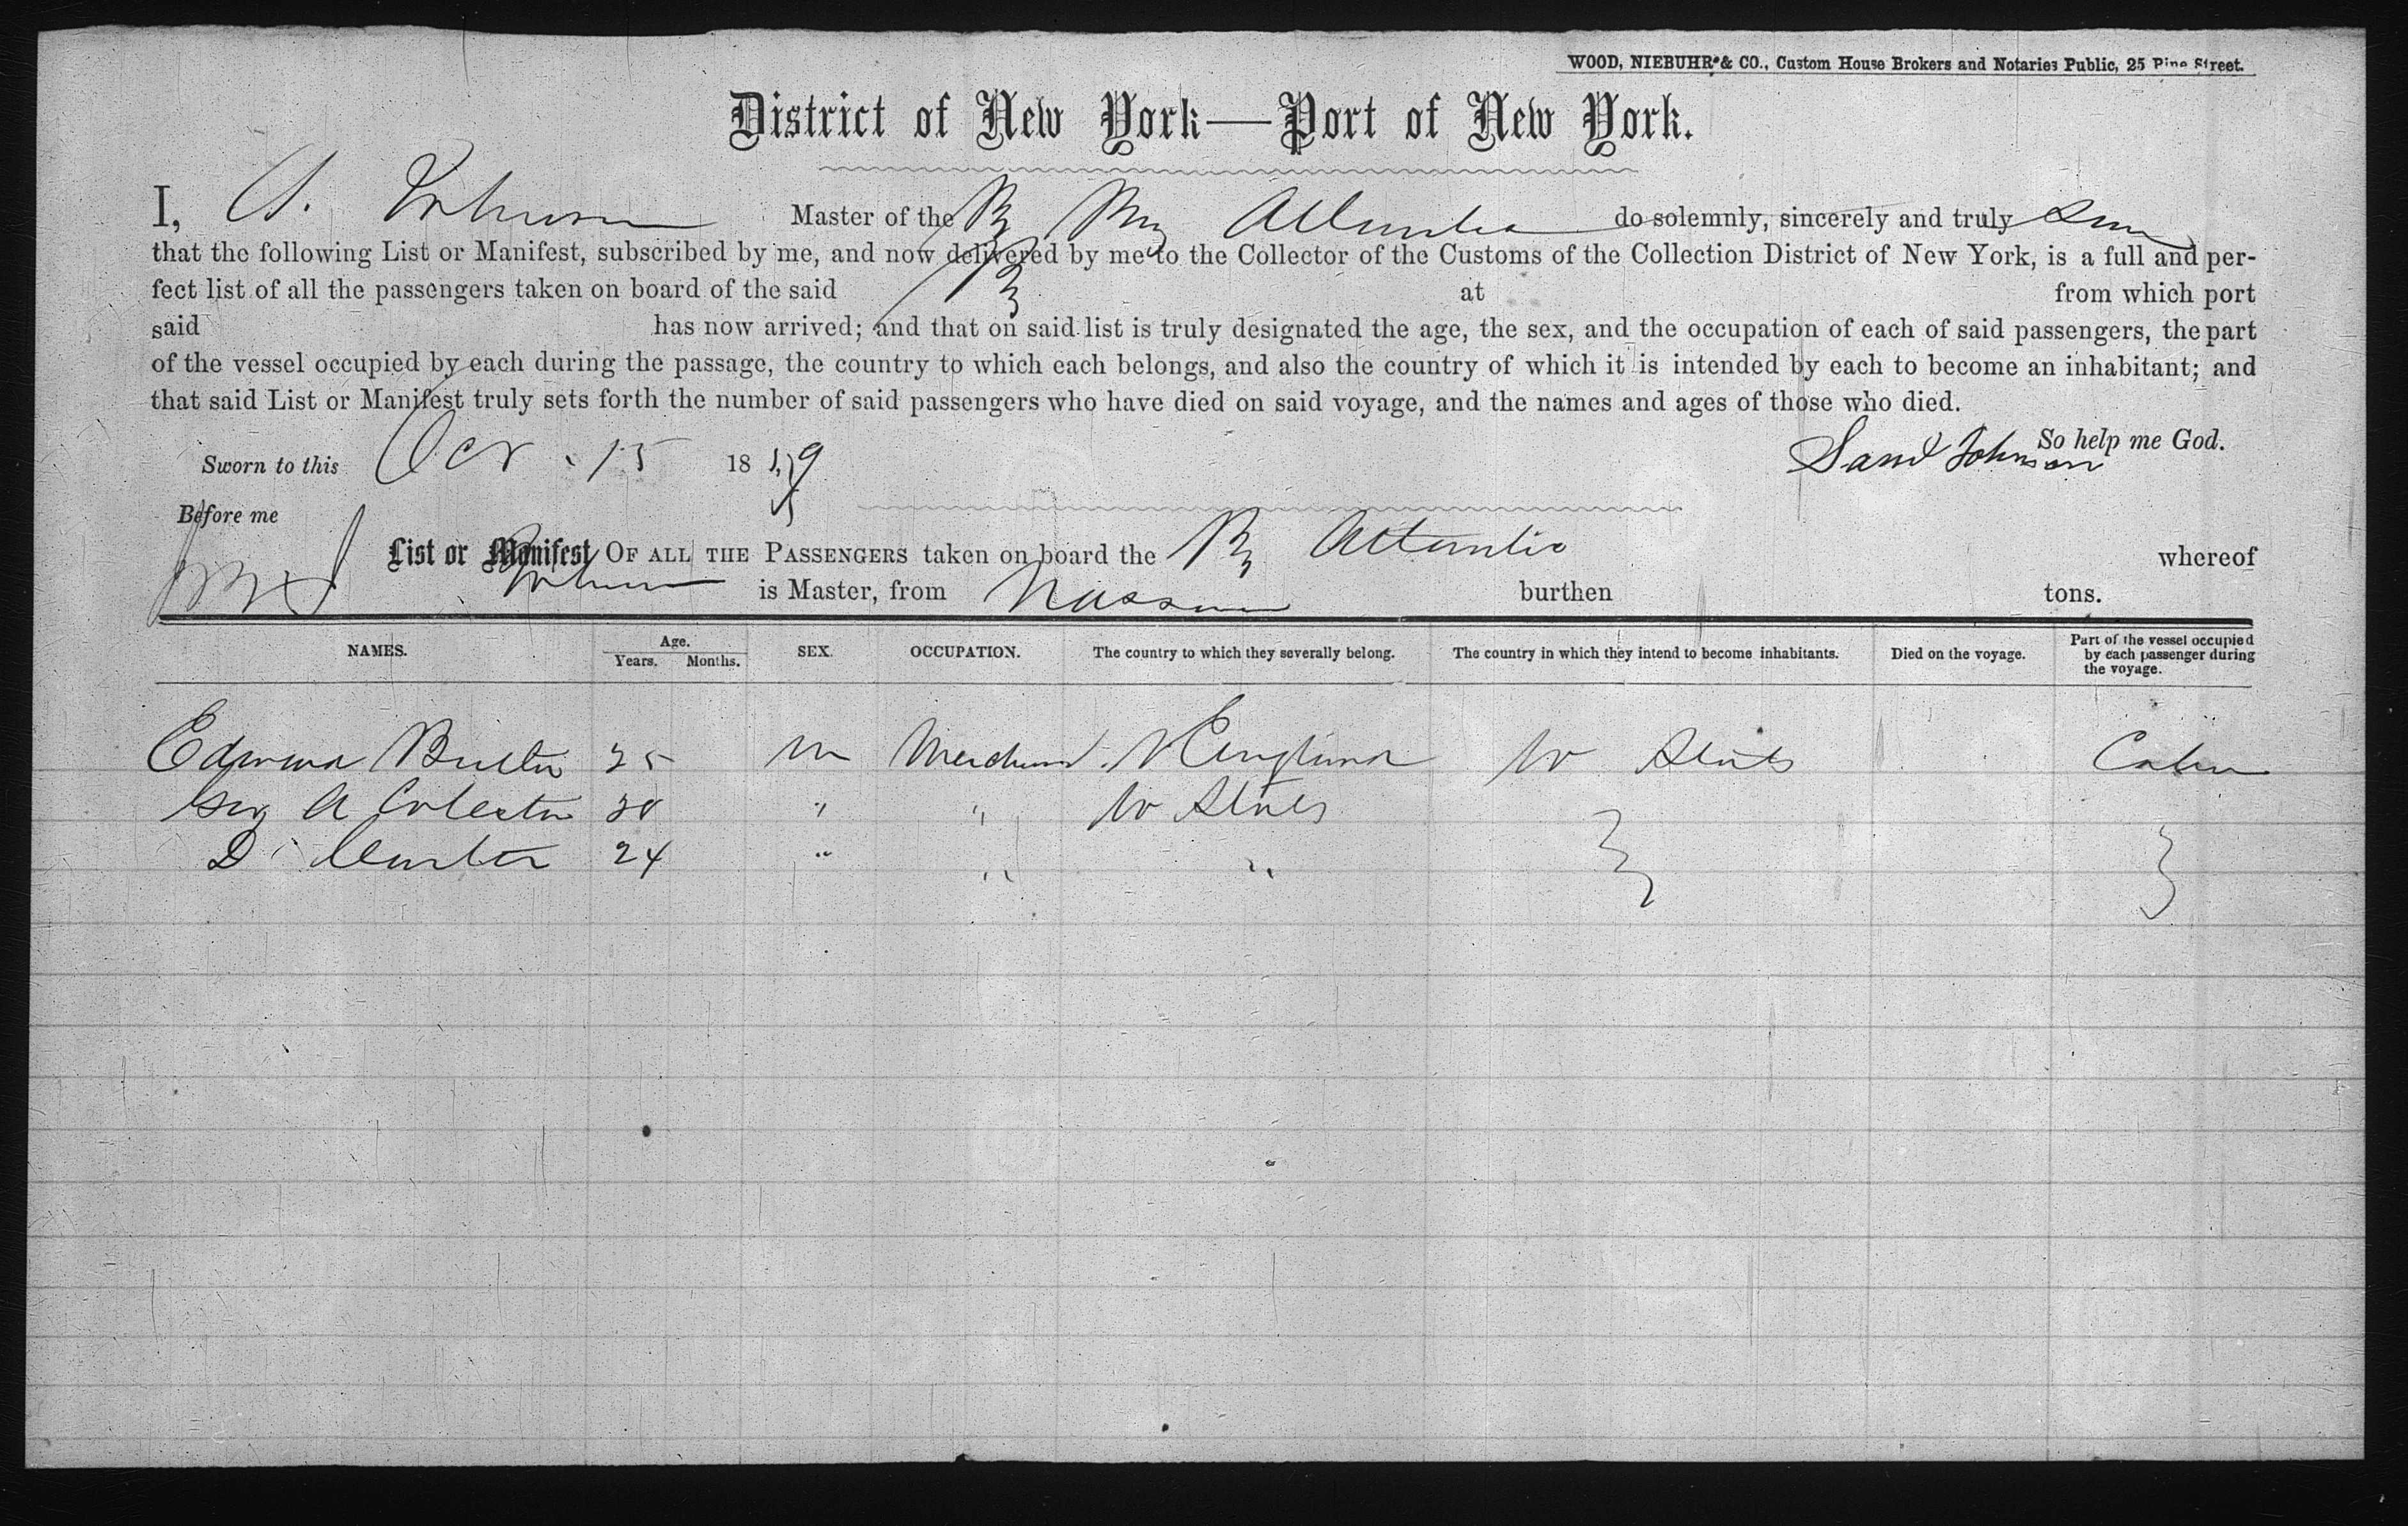 WOOD, NIEBUHR & CO., Custom House Brokers and Notaries Public, 25 Pine Street.
District of New York—Port of New York.
I, S. Johnson Master of the Atlantic do solemnly, sincerely and truly
that the following List or Manifest, subscribed by me, and now delivered by me to the Collector of the Customs of the Collection District of New York, is a full and per-
fect list of all the passengers taken on board of the said at from which port
said has now arrived; and that on said list is truly designated the age, the sex, and the occupation of each of said passengers, the part
of the vessel occupied by each during the passage, the country to which each belongs, and also the country of which it is intended by each to become an inhabitant; and
that said List or Manifest truly sets forth the number of said passengers who have died on said voyage, and the names and ages of those who died.
So help me God.
Sworn to this Oct. 15 1859 Saml Johnson
Before me
List or Manifest OF ALL THE PASSENGERS taken on board the Atlantic whereof
Johnson is Master, from Nassau burthen tons.
NAMES. Age. Years. Months. SEX. OCCUPATION. The country to which they severally belong. The country in which they intend to become inhabitants. Died on the voyage. Part of the vessel occupied by each passenger during the voyage.
Edward 25 m Merchant England U States Cabin
A 30 " " U States
D 24 " " "